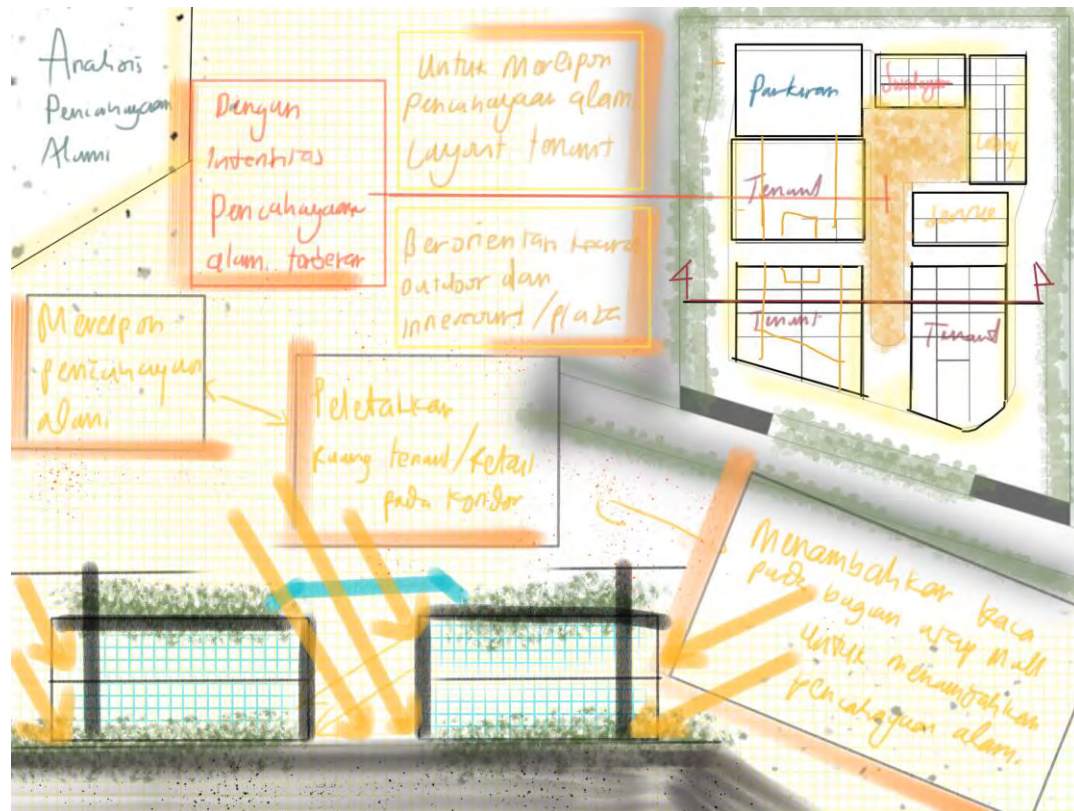 Analisis
Pencahayaan
Alami
Dengan
Intensitas
Pencahayaan
alami terbesar
Untuk Merespon
pencahayaan alam
Layout tenant
Berorientasi
outdoor dan
innercourt/plaza
Merespon
pencahayaan
alam.
Peletakkan
ruang tenant/Retail
pada koridor
Menambahkan kaca
pada bagian atap Mall
Untuk menambahkan
pencahayaan alam.
Parkiran
Swalayan
Tenant
Service
Tenant
Tenant